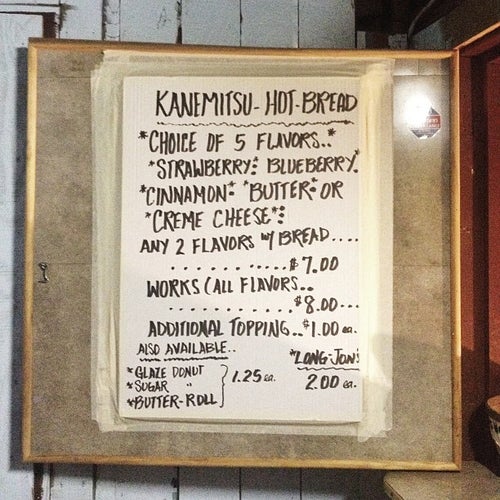 KANEMITSU-HOT-BREAD
*CHOICE OF 5 FLAVORS..*
*STRAWBERRY* BLUEBERRY*
*CINNAMON* *BUTTER* OR
*CREME CHEESE*
ANY 2 FLAVORS W/ BREAD....
. . . . . . . . . . . $7.00
WORKS (ALL FLAVORS..
. . . . . . . . . . . $8.00...
ADDITIONAL TOPPING..$1.00 ea.
ALSO AVAILABLE..
*GLAZE DONUT
*SUGAR "
*BUTTER-ROLL
1.25 ea.
*LONG-JONS
2.00 ea.